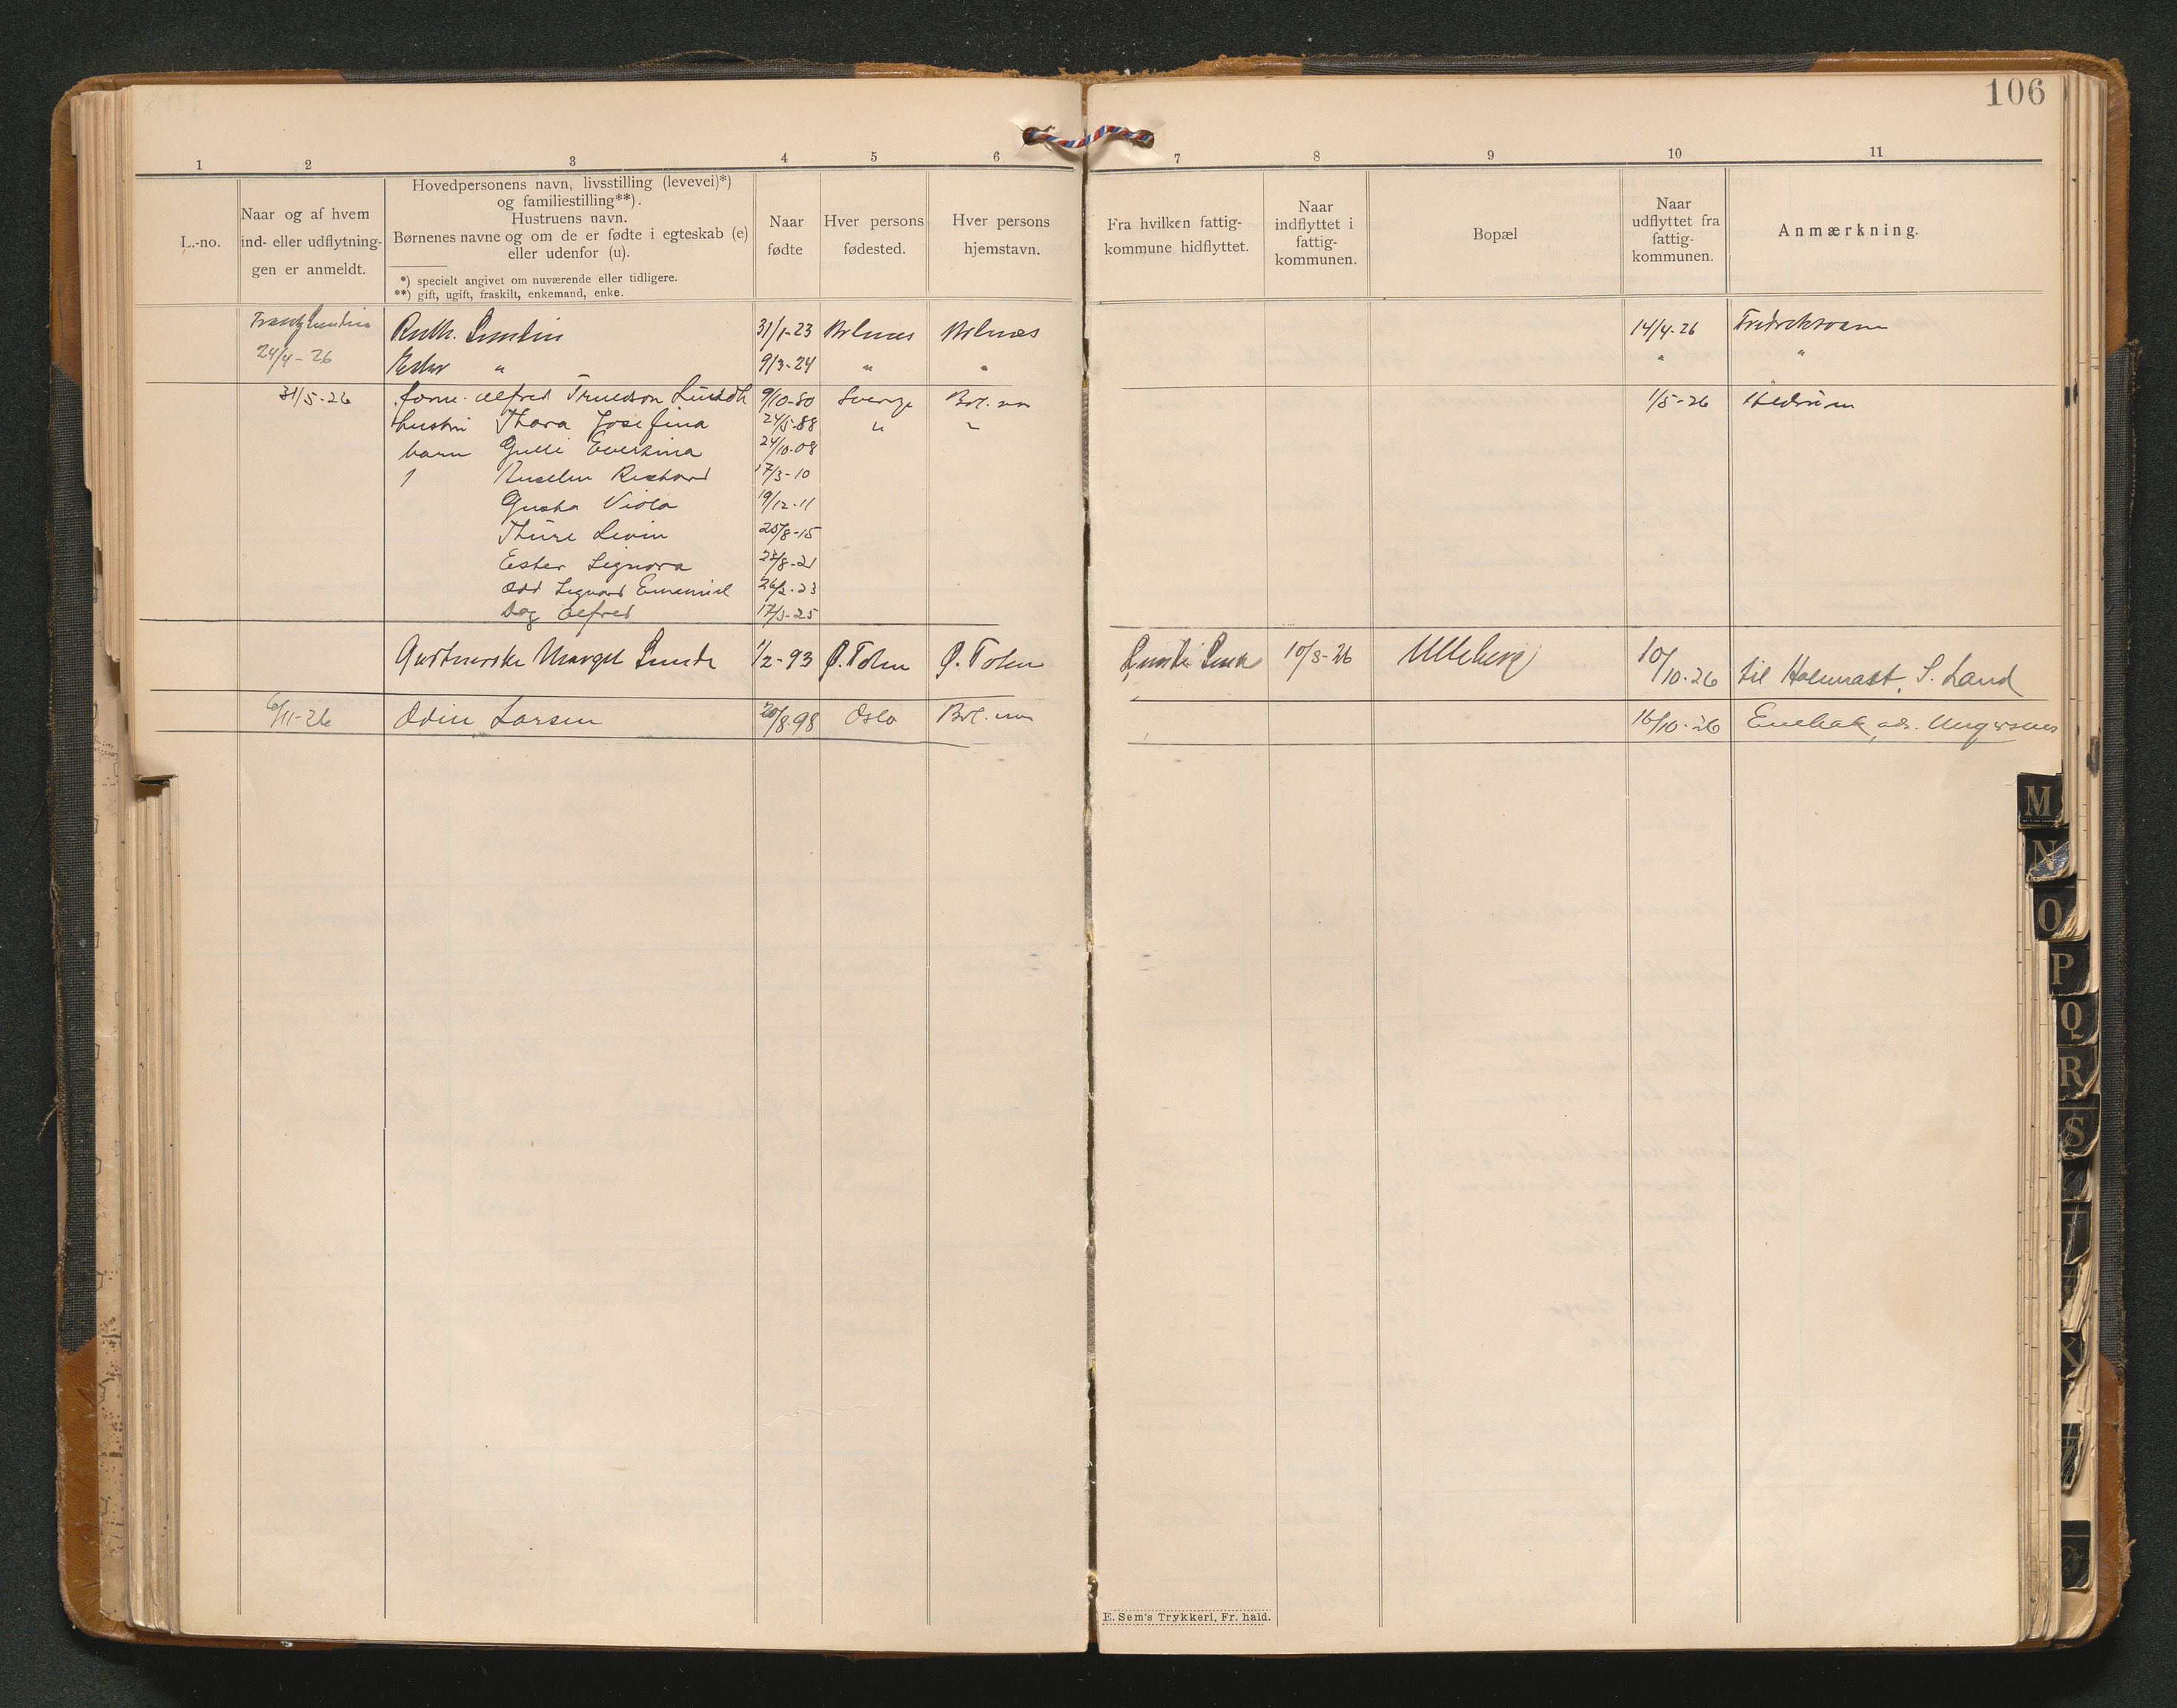 106
1 2 3 4 5 6 7 8 9 10 11
L.-no.
Naar og af hvem
ind- eller udflytnin-
gen er anmeldt.
Hovedpersonens navn, livsstilling (levevei)*)
og familiestilling**).
Hustruens navn.
Børnenes navne og om de er fødte i egteskab (e)
eller udenfor (u).
*) specielt angivet om nuværende eller tidligere.
**) gift, ugift, fraskilt, enkemand, enke.
Naar
fødte
Hver persons
fødested.
Hver persons
hjemstavn.
Fra hvilken fattig-
kommune hidflyttet.
Naar
indflyttet i
fattig-
kommunen.
Bopæl
Naar
udflyttet fra
fattig-
kommunen.
Anmærkning.
Ruth. Lundin 31/1-23 14/4-26
24/4-26 Ester " 9/3-24 " " " "
31/5-26 Alfred Truedson 9/10-80 Sverige 1/5-26 Hedrum
hustru Thora Josefina 24/5-88 "
barn Gulli 24/10-08
Rickard 17/3-10
Gusta Viola 19/12-11
Thure Levin 25/8-15
Ester Signora /8-21
Odd Signard Emanuel 26/2-23
Dag Alfred 17/3-25
Margit Lunde 1/2-93 Ø. Toten Ø. Toten 10/3-26 Ulleberg 10/10-26 til S. Land
6/11-26 Odin Larsen 20/8-98 Oslo 16/10-26
M
N
O
P
Q
R
S
E. Sem's Trykkeri, Fr. hald.